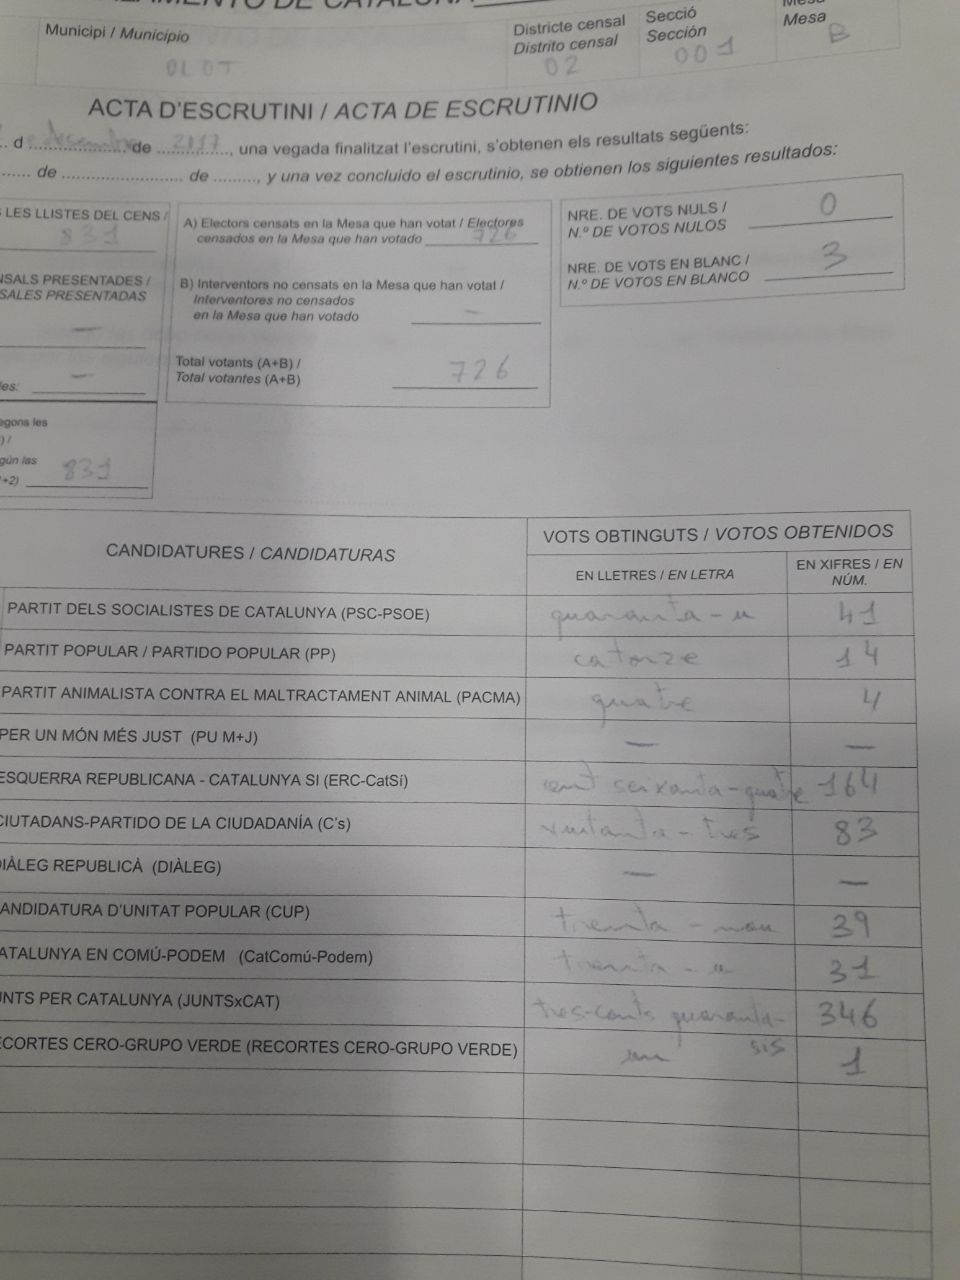 DE CATALUÑA
Municipi / Municipio
OLOT
Districte censal
Distrito censal
02
Secció
Sección
001
Mesa
Mesa
B
ACTA D'ESCRUTINI / ACTA DE ESCRUTINIO
d desembre de 2017, una vegada finalitzat l'escrutini, s'obtenen els resultats següents:
de de , y una vez concluido el escrutinio, se obtienen los siguientes resultados:
LES LLISTES DEL CENS /
831
PRESENTADES /
PRESENTADAS
—
es:
—
les
) /
las
+2) 831
A) Electors censats en la Mesa que han votat / Electores
censados en la Mesa que han votado 726
B) Interventors no censats en la Mesa que han votat /
Interventores no censados
en la Mesa que han votado —
Total votants (A+B) /
Total votantes (A+B) 726
NRE. DE VOTS NULS /
N.º DE VOTOS NULOS 0
NRE. DE VOTS EN BLANC /
N.º DE VOTOS EN BLANCO 3
CANDIDATURES / CANDIDATURAS
VOTS OBTINGUTS / VOTOS OBTENIDOS
EN LLETRES / EN LETRA
EN XIFRES / EN
NÚM.
PARTIT DELS SOCIALISTES DE CATALUNYA (PSC-PSOE) quaranta-u 41
PARTIT POPULAR / PARTIDO POPULAR (PP) catorze 14
PARTIT ANIMALISTA CONTRA EL MALTRACTAMENT ANIMAL (PACMA) quatre 4
PER UN MÓN MÉS JUST (PU M+J) — —
ESQUERRA REPUBLICANA - CATALUNYA SI (ERC-CatSí) cent seixanta-quatre 164
CIUTADANS-PARTIDO DE LA CIUDADANÍA (C's) vuitanta-tres 83
DIÀLEG REPUBLICÀ (DIÀLEG) — —
ANDIDATURA D'UNITAT POPULAR (CUP) trenta-nou 39
ATALUNYA EN COMÚ-PODEM (CatComú-Podem) trenta-u 31
UNTS PER CATALUNYA (JUNTSxCAT) tres-cents quaranta-sis 346
ECORTES CERO-GRUPO VERDE (RECORTES CERO-GRUPO VERDE) un 1